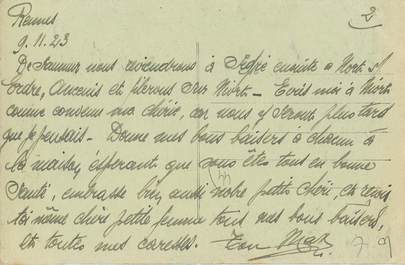 Rennes
2
9.11.23
De Saumur nous reviendrons à Segré ensuite à Nort s/
Erdre, Ancenis et filerons sur Niort – Écris moi à Niort
comme convenu ma chérie, car nous y serons plus tard
que je pensais – Donne mes bons baisers à chacun à
la maison, espérant que vous êtes tous en bonne
Santé, embrasse bien aussi notre petit chéri, et reçois
toi même chère petite femme tous mes bons baisers,
et toutes mes caresses. Ton